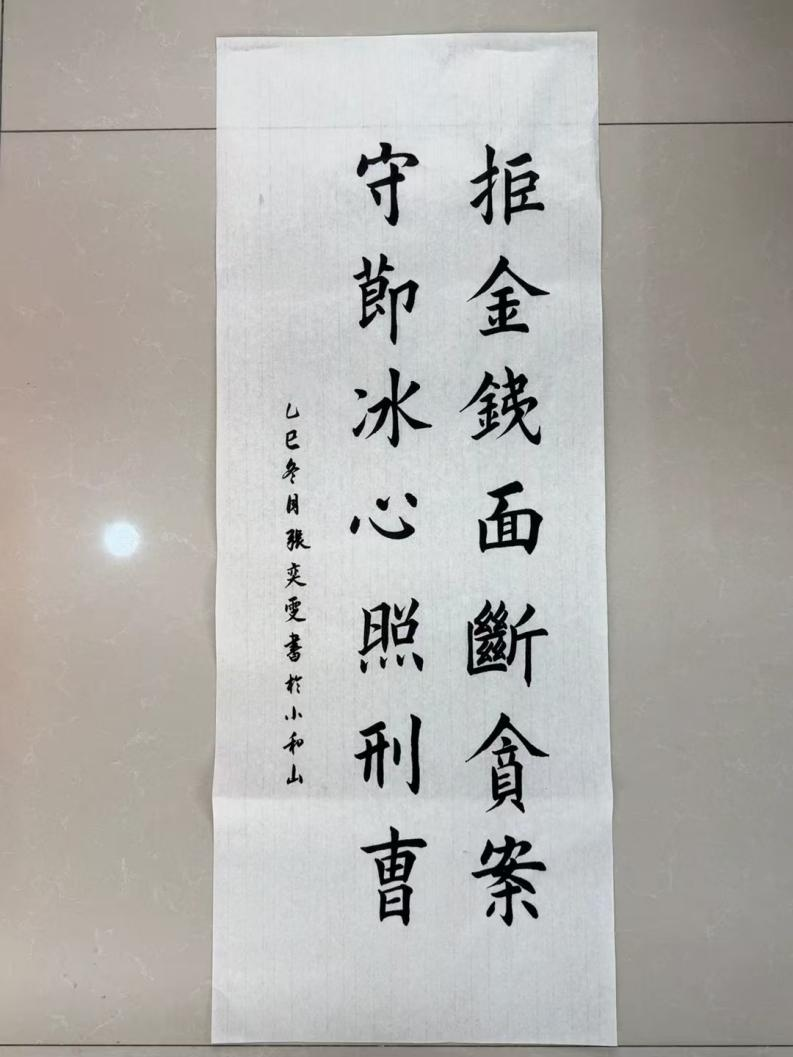 拒金銕面斷貪案
守莭冰心照刑曺
乙巳冬月張奕雯書於小和山